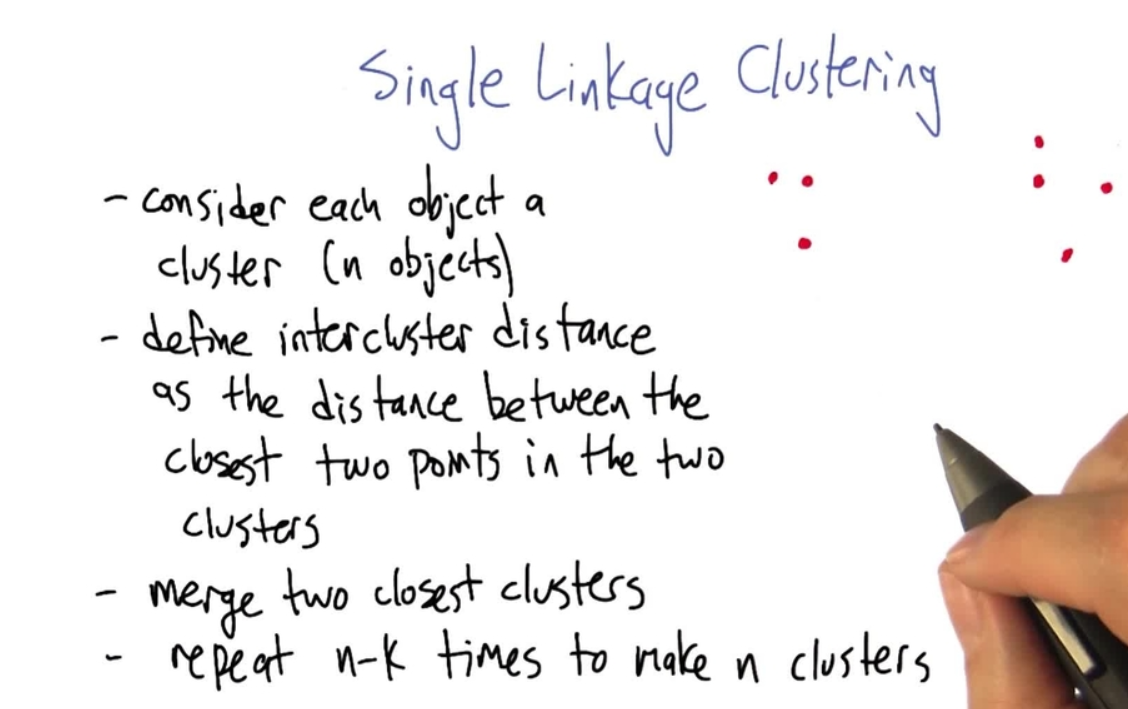 Single Linkage Clustering
- consider each object a
cluster (n objects)
- define intercluster distance
as the distance between the
closest two points in the two
clusters
- merge two closest clusters
- repeat n-k times to make n clusters